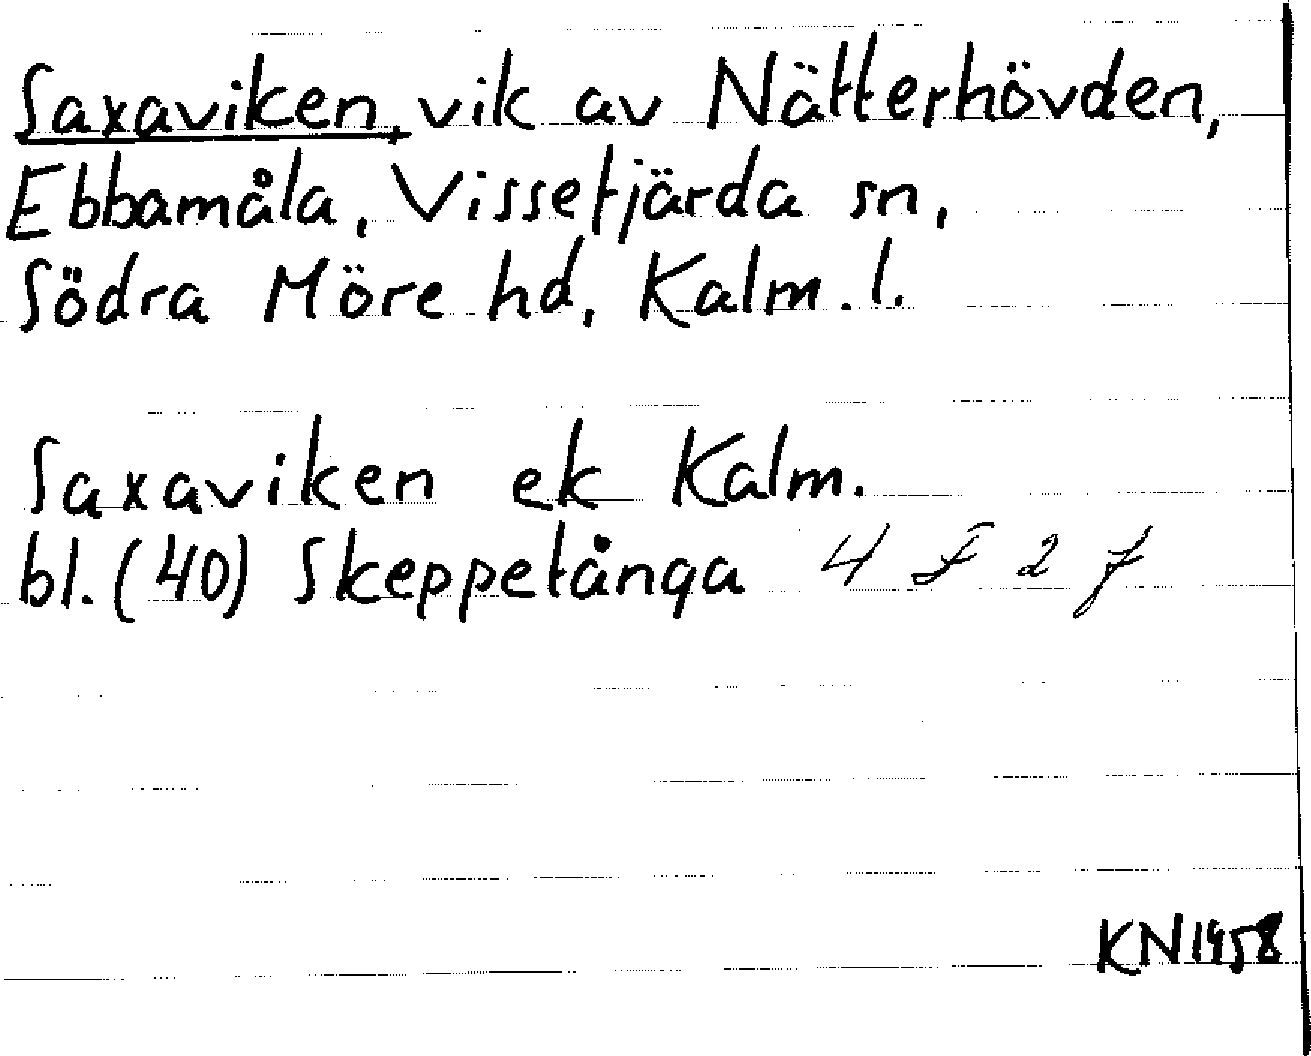 Saxaviken, vik av Nätterhövden,
Ebbamåla, Vissefjärda sn,
Södra Möre hd, Kalm. l.
Saxaviken ek Kalm.
bl. (40) Skeppetånga 4 F 2 f
KN 1958